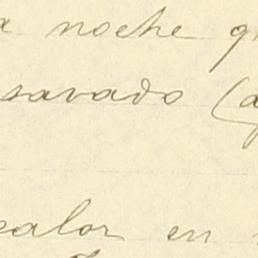 a noche q
savado (a
calor en